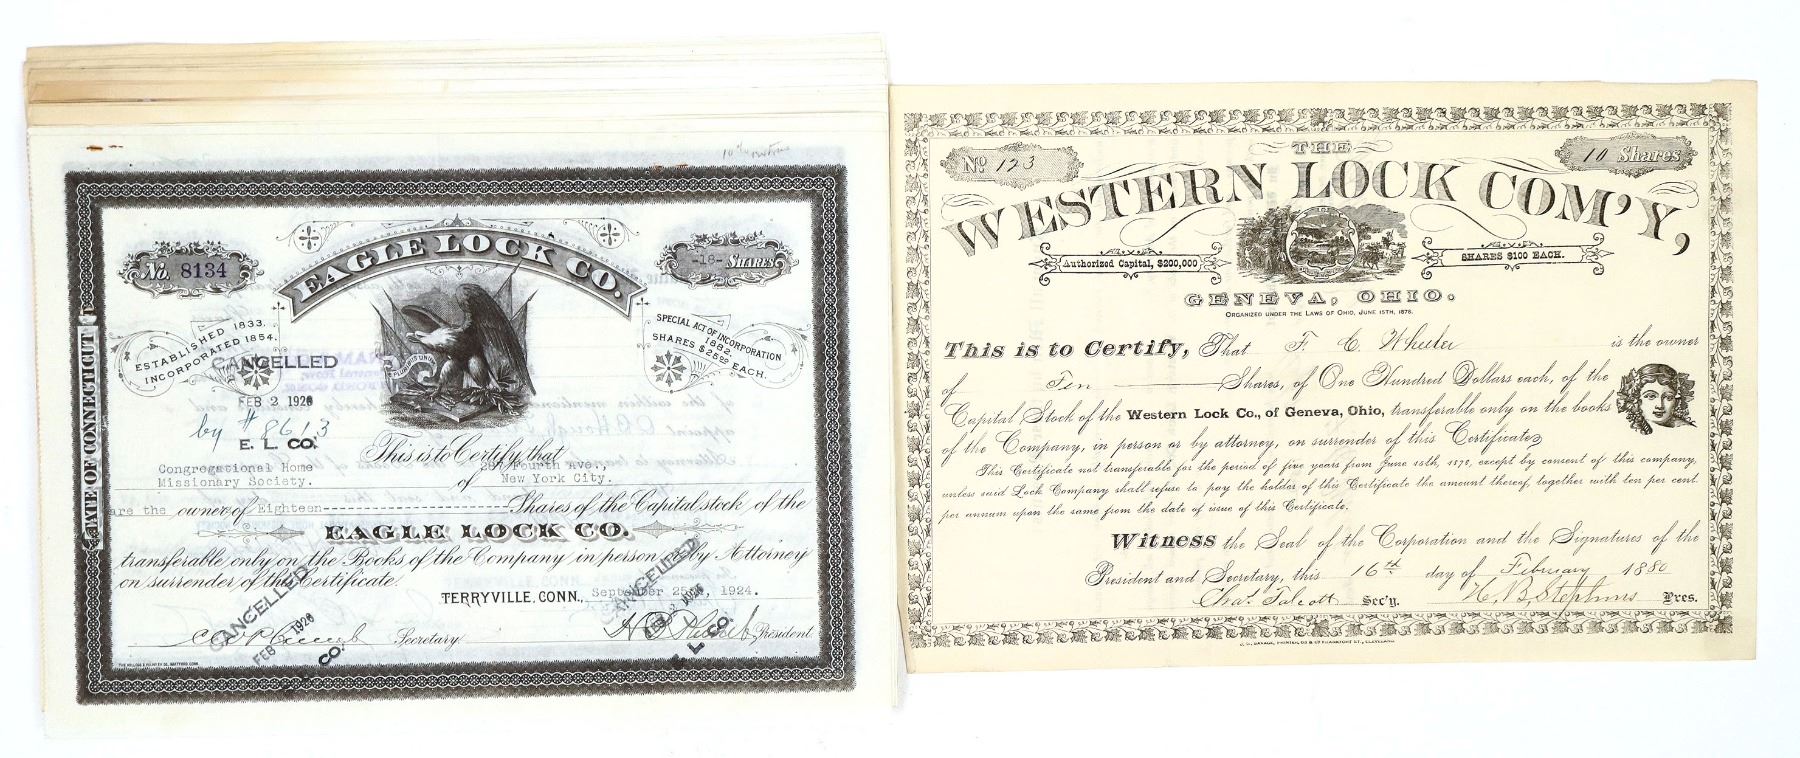 10
STATE OF CONNECTICUT
No. 8134
EAGLE LOCK CO.
-18- SHARES
ESTABLISHED 1833.
INCORPORATED 1854.
SPECIAL ACT OF INCORPORATION
1882.
SHARES $25.00 EACH.
E PLURIBUS UNUM
CANCELLED
FEB 2 1926
by # 8613
E. L. CO.
This is to Certify that
Congregational Home
Missionary Society.
of
287 Fourth Ave.,
New York City.
are the owner of Eighteen---------- Shares of the Capital stock of the
EAGLE LOCK CO.
transferable only on the Books of the Company in person or by Attorney
on surrender of this Certificate.
TERRYVILLE, CONN., September 25th, 1924.
Secretary.
President.
CANCELLED
FEB 1926
CO.
CANCELLED
FEB 2 1926
E. L. CO.
No 123
THE
10 Shares
WESTERN LOCK COM'Y,
Authorized Capital, $200,000
SHARES $100 EACH.
GENEVA, OHIO.
ORGANIZED UNDER THE LAWS OF OHIO, JUNE 15TH, 1878.
This is to Certify, That F. C. Wheeler is the owner
of Ten Shares, of One Hundred Dollars each, of the
Capital Stock of the Western Lock Co., of Geneva, Ohio, transferable only on the books
of the Company, in person or by attorney, on surrender of this Certificate.
This Certificate not transferable for the period of five years from June 15th, 1878, except by consent of this company,
unless said Lock Company shall refuse to pay the holder of this Certificate the amount thereof, together with ten per cent.
per annum upon the same from the date of issue of this Certificate.
Witness the Seal of the Corporation and the Signatures of the
President and Secretary, this 16th day of February 1880
Chas. Talcott Sec'y. H. B. Stephens Pres.